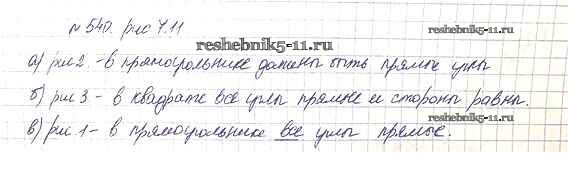 №540. рис 4.11
reshebnik5-11.ru
reshebnik5-11.ru
а) рис 2 - в прямоугольнике должны быть прямые углы
б) рис 3 - в квадрате все углы прямые и стороны равны.
reshebnik5-11.ru
в) рис 1 - в прямоугольнике все углы прямые.